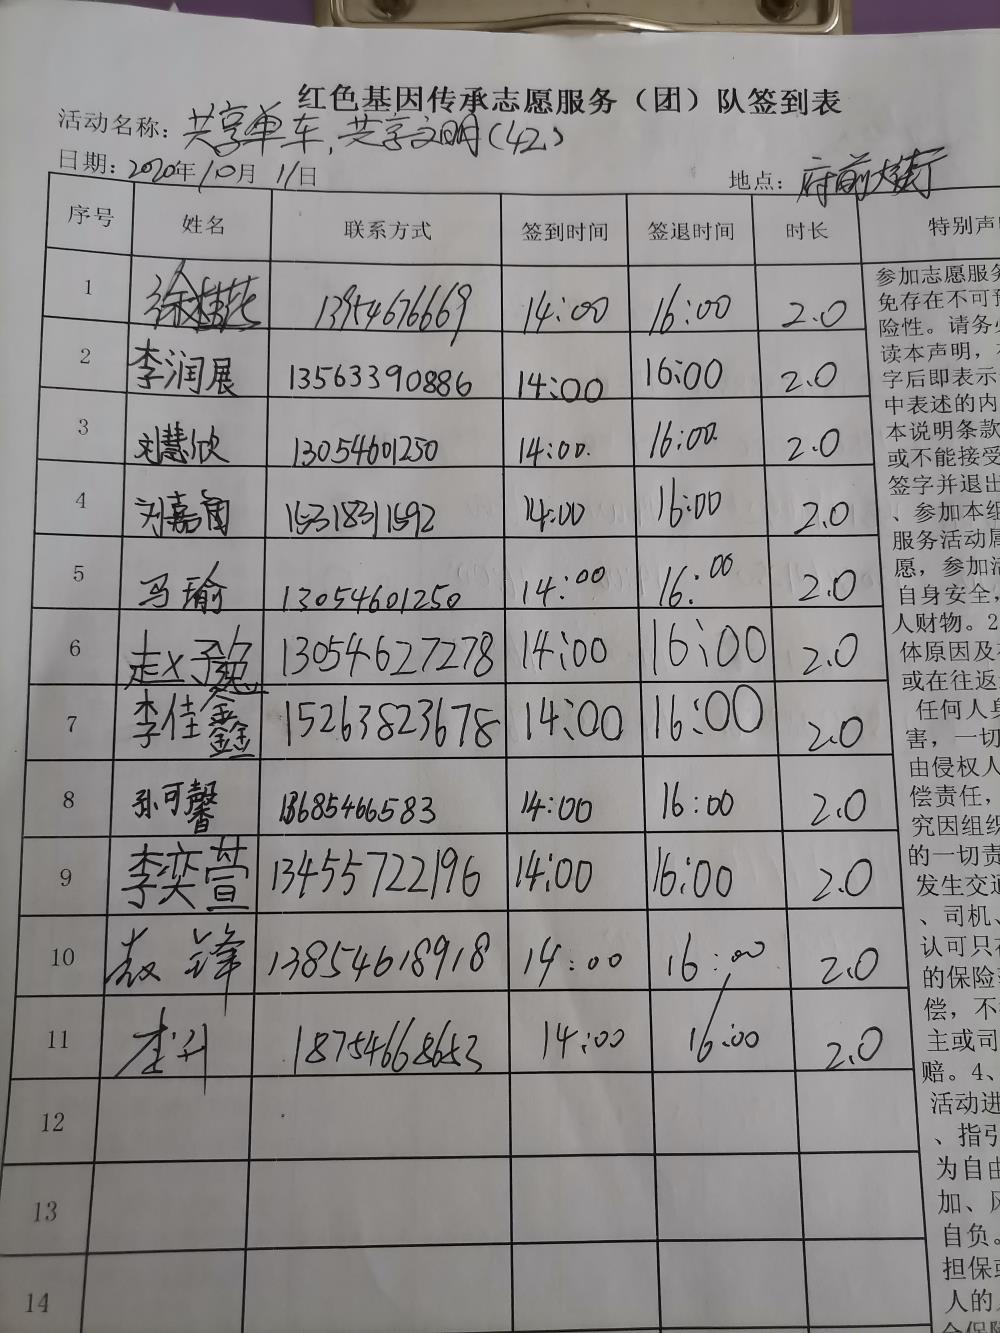 红色基因传承志愿服务（团）队签到表
活动名称：共享单车，共享文明（42）
日期：2020年10月11日
地点：府前大街
序号 姓名 联系方式 签到时间 签退时间 时长 特别声明
1 徐桂花 13954676669 14:00 16:00 2.0
2 李润展 13563390886 14:00 16:00 2.0
3 刘慧欣 13054601250 14:00. 16:00. 2.0
4 刘嘉 15318311592 14:00 16:00 2.0
5 马瑜 13054601250 14:00 16:00 2.0
6 赵子 13054627278 14:00 16:00 2.0
7 李佳鑫 15263823678 14:00 16:00 2.0
8 孙可馨 13685466583 14:00 16:00 2.0
9 李奕萱 13455722196 14:00 16:00 2.0
10 锋 13854618918 14:00 16:00 2.0
11 李升 18754668653 14:00 16:00 2.0
12
13
14
参加志愿服务
免存在不可预
险性。请务必
读本声明，
字后即表示
中表述的内
本说明条款
或不能接受
签字并退出
、参加本组
服务活动属
愿，参加活
自身安全，
人财物。2
体原因及
或在往返
任何人身
害，一切
由侵权人
偿责任，
究因组织
的一切责
发生交通
、司机、
认可只在
的保险
偿，不
主或司
赔。4、
活动进
、指引
为自由
加、风
自负。
担保或
人的